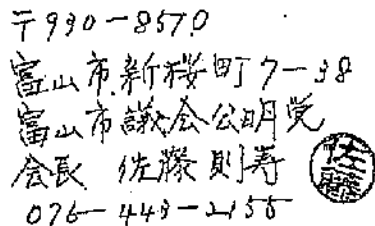 〒930-8570
富山市新桜町7-38
富山市議会公明党
会長 佐藤則寿 佐藤
076-443-2155